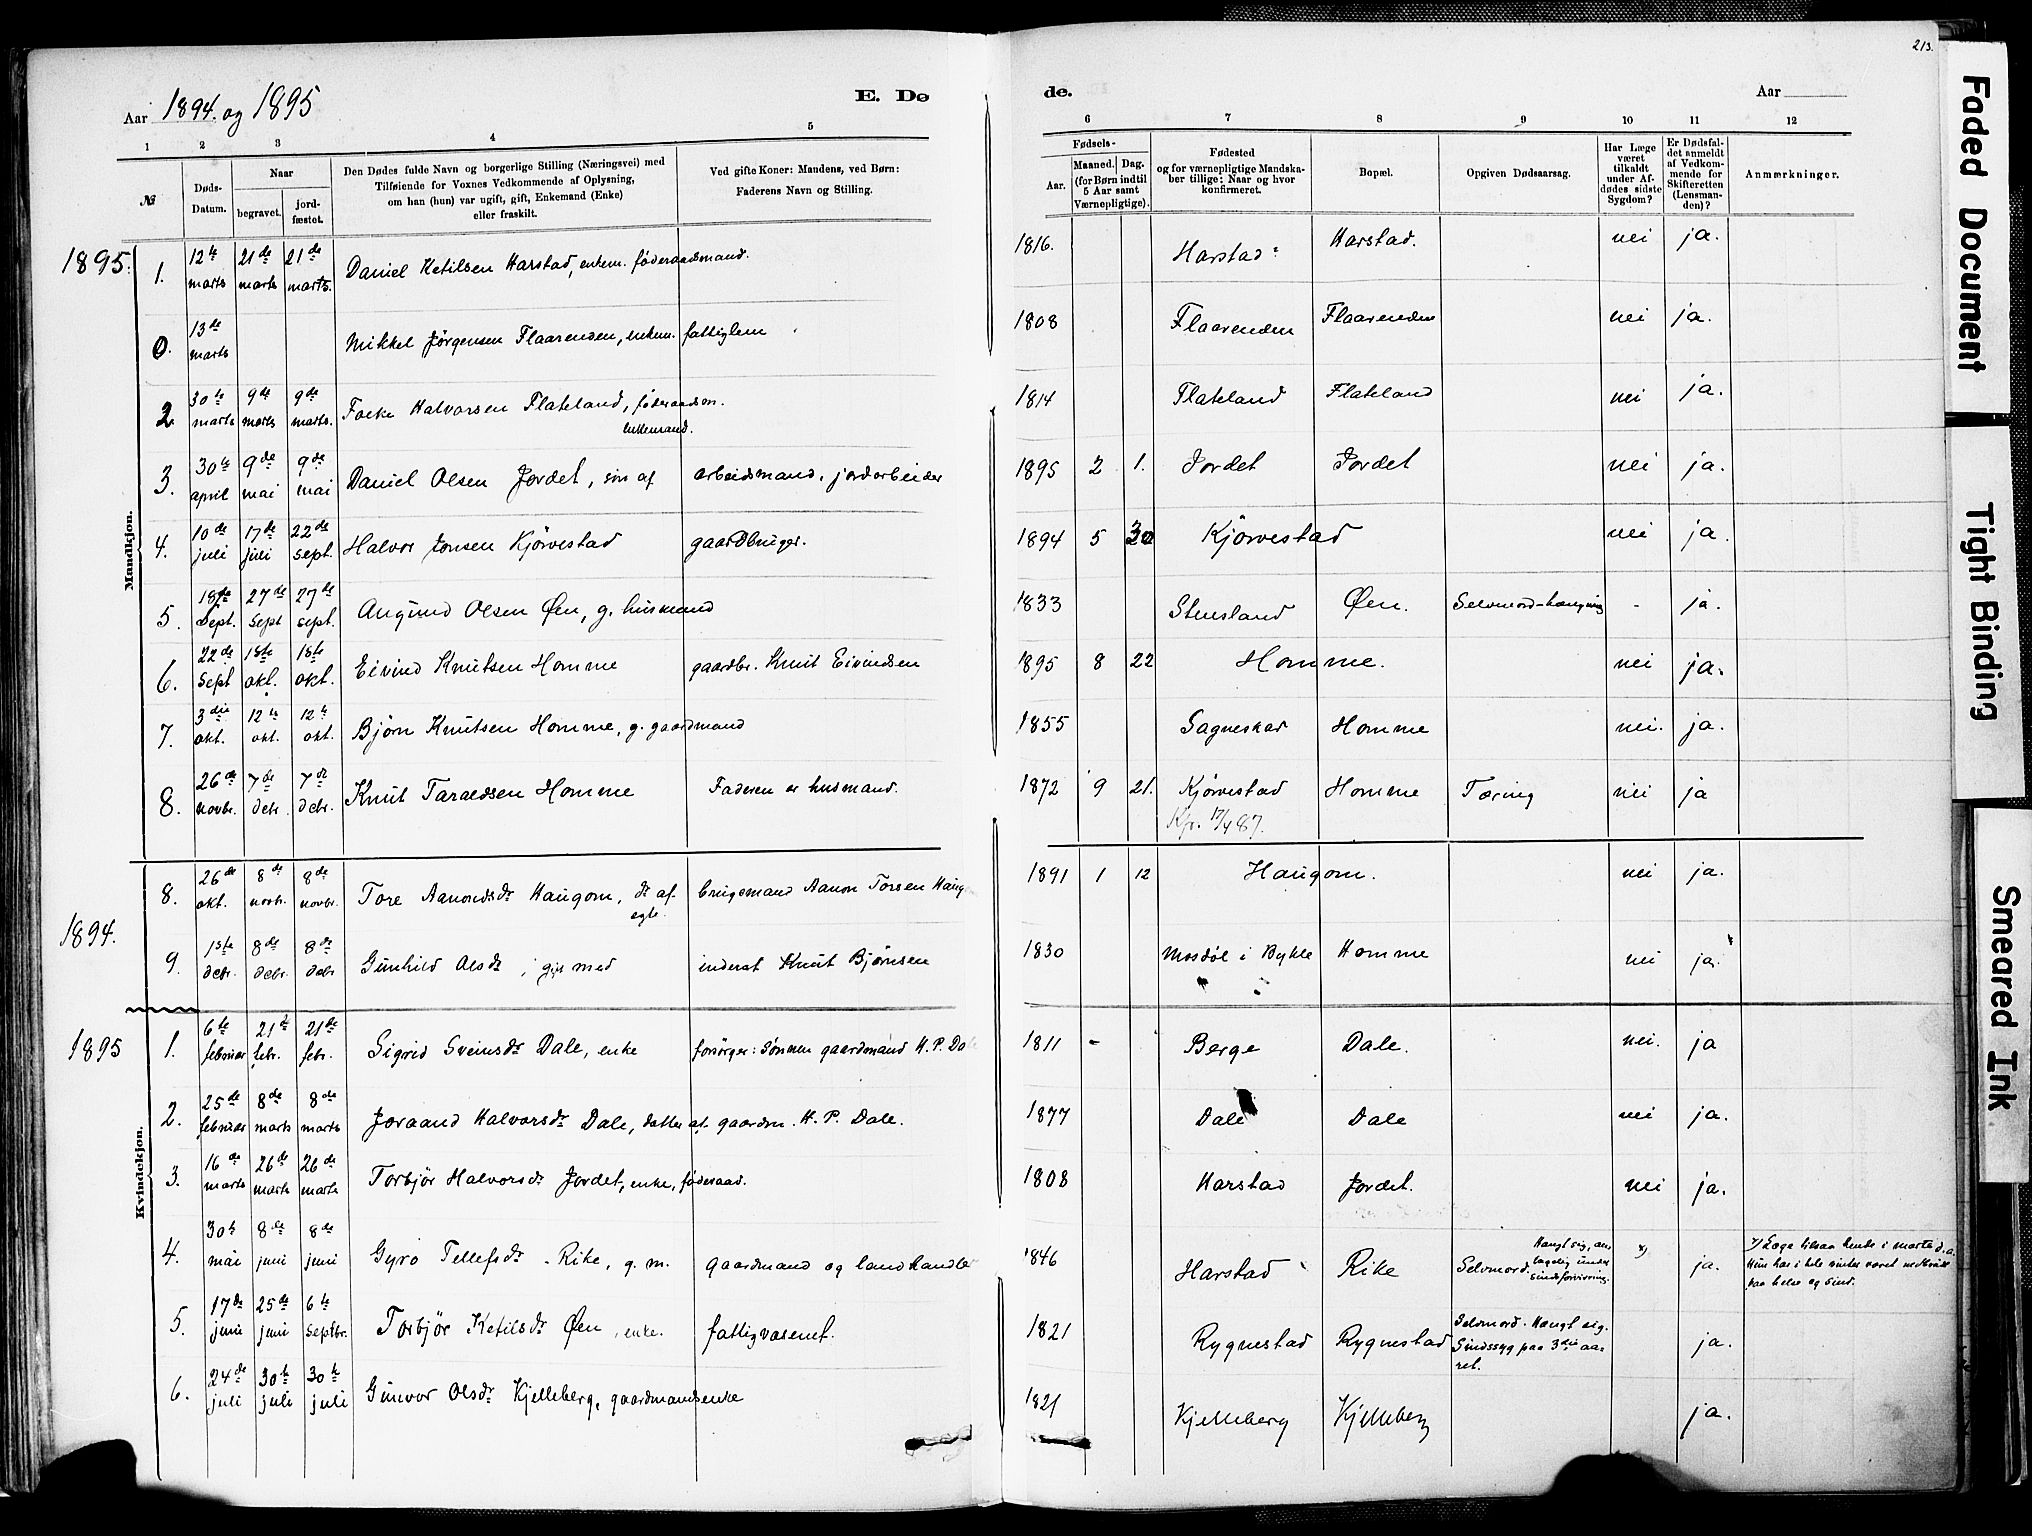 213.
Aar 1894. og 1895
E. Dø
de.
Aar
1 2 3 4 5
6 7 8 9 10 11 12
№
Døds-Datum.
Naar
begravet.
jord-fæstet.
Den Dødes fulde Navn og borgerlige Stilling (Næringsvei) med
Tilføiende for Voxnes Vedkommende af Oplysning,
om han (hun) var ugift, gift, Enkemand (Enke)
eller fraskilt.
Ved gifte Koner: Mandens, ved Børn:
Faderens Navn og Stilling.
Fødsels-
Aar.
Maaned. Dag.
(for Børn indtil
5 Aar samt
Værnepligtige).
Fødested
og for værnepligtige Mandska-
ber tillige: Naar og hvor
konfirmeret.
Bopæl.
Opgiven Dødsaarsag.
Har Læge
været
tilkaldt
under Af-
dødes sidste
Sygdom?
Er Dødsfal-
det anmeldt
af Vedkom-
mende for
Skifteretten
(Lensman-
den)?
Anmærkninger.
Mandkjøn.
1895. 1. 12te marts 21de marts 21de marts. Daniel Ketilsen Harstad, enkem. føderaadsmand. 1816. Harstad Harstad. nei ja.
0. 13de marts Mikkel Jørgensen Flaarenden, enkem. fattiglem 1808 Flaarenden Flaarenden nei ja.
2. 30te marts 9de marts 9de marts. Halvorsen Flateland, føderaadsm. enkemand. 1814 Flateland Flateland nei ja.
3. 30te april 9de mai 9de mai Daniel Olsen Jordet, søn af arbeidsmand, jordarbeider 1895 2 1. Jordet Jordet nei ja.
4. 10de juli 17de juli 22de sept. Halvor Jonsen Kjörvestad gaardbruger. 1894 5 30 Kjörvestad nei ja.
5. 18de Sept. 27de Sept 27de sept. Augund Olsen Øen, g. husmand 1833 Stensland Øen. Selvmord-hængning - ja.
6. 22de Sept 18te okt. 18te okt. Eivind Knutsen Homme gaardbr. Knut Eivindsen 1895 8 22 Homme. nei ja.
7. 3die okt. 12te okt. 12te okt. Bjørn Knutsen Homme, g. gaardmand 1855 Sagneskar Homme nei. ja.
8. 26de novbr. 7de debr. 7de debr. Knut Taraldsen Homme Faderen er husmand. 1872 9 21. Kjörvestad Homme Tæring nei ja
Kfr. 17/4 87.
Kvindekjøn.
1894.
8. 26de okt. 8de novbr. 8de novbr. Tore Aanondsdr Haugom, dr af egte. brugsmand Aanon Torsen 1891 1 12 Haugom. nei ja.
9. 1ste debr. 8de debr. 8de debr Gunhild Olsdr, gift med inderst Knut Bjørnsen 1830 Mosdøl i Bykle Homme nei ja.
1895 1. 6te februar 21de febr. 21de febr. Sigrid Sveinsdr Dale, enke forsørger: Sønnen gaardmand H. P. Dale 1811 - Berge Dale. nei. ja
2. 25de februar 8de marts 8de marts Joraand Halvorsdr Dale, datter af gaardm. H. P. Dale. 1877 Dale Dale nei ja.
3. 16de marts 26de marts 26de marts Torbjør Halvorsdr Jordet, enke, føderaad. 1808 Harstad Jordet. nei ja.
4. 30te mai 8de juni 8de juni Gyro Tellefsdr Rike, g. m. gaardmand og landhandler 1846 Harstad Rike Selvmord. Hængt sig, antagelig under sindsforvirring. x) ja. x) Læge tilsaa hende i marts d.a. Hun har i hele vinter været nedbrudt paa helse og sind.
5. 17de juni 25de juni 6te Septbr. Torbjør Ketilsdr Øen, enke. fattigvæsenet. 1821 Rygnestad Rygnestad Selvmord. Hængt sig. Sindssyg paa 3die aaret. ja.
6. 24de juli 30te juli 30te juli Gunvor Olsdr Kjelleberg, gaardmandsenke 1821 Kjelleberg Kjelleberg ja.
Faded Document
Tight Binding
Smeared Ink